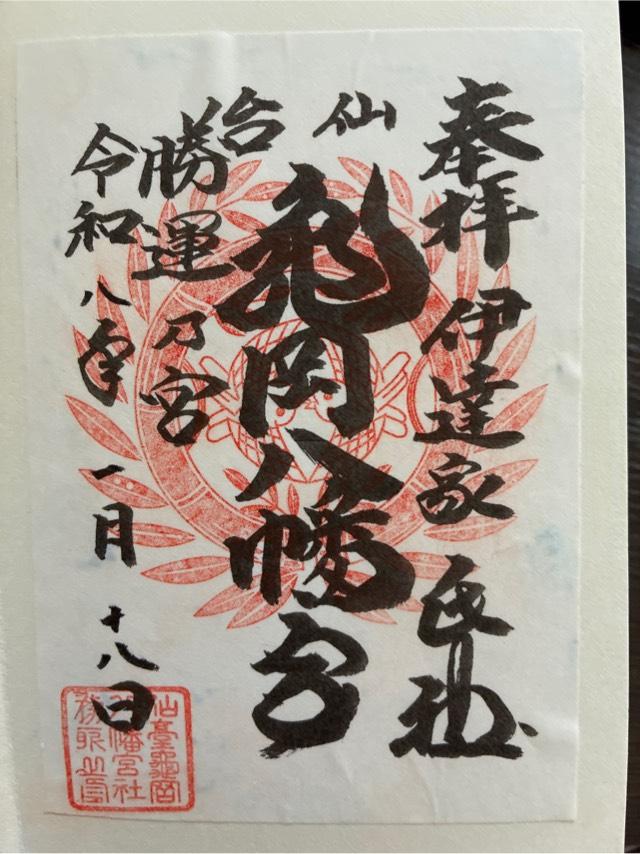 奉拝 伊達家 氏社
仙台
亀岡八幡宮
勝運乃宮
令和八年 一月 十八日
仙臺龜岡
八幡宮社
務所之